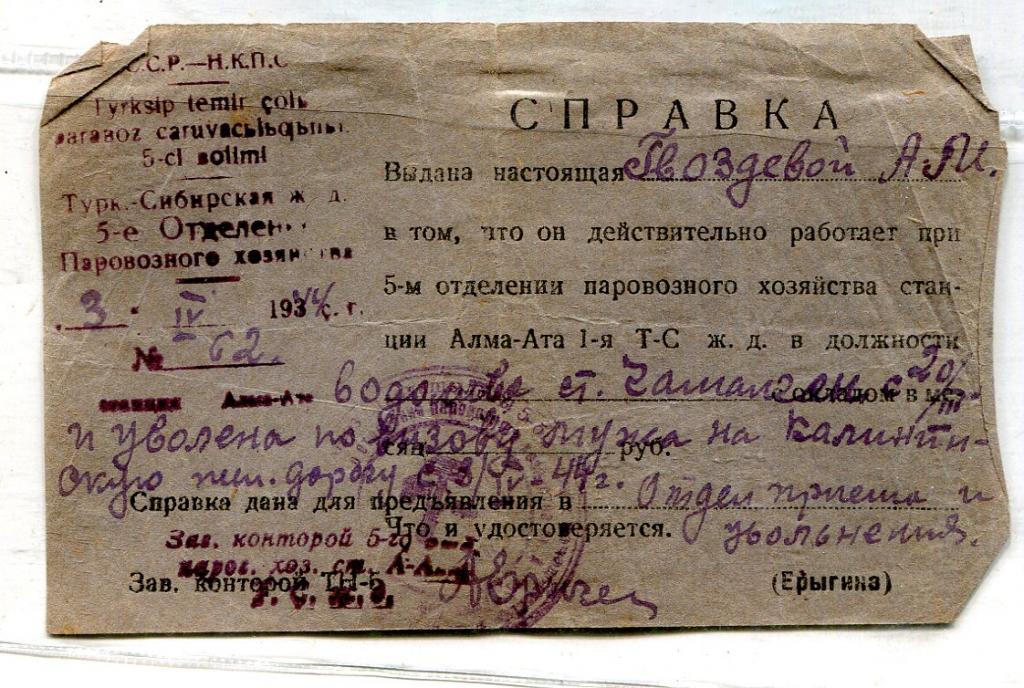 С.С.Р.—Н.К.П.С
Tyrksip temir çolь
paravoz caruvacьlьqьnьn
5-ci bolimi
Турк.-Сибирская ж. д.
5-е Отделен
Паровозного хозяйства
3. IV 1944 г.
№ 62.
станция Алма-Ата
СПРАВКА
Выдана настоящая Гвоздевой А.И.
в том, что он действительно работает при
5-м отделении паровозного хозяйства стан-
ции Алма-Ата 1-я Т-С ж. д. в должности
ст. с окладом в ме- 20/III
сяц руб.
и уволена по вызову мужа на Калинин-
скую жел. дорогу с 3/IV-44 г.
Справка дана для предъявления в Отдел приема и
увольнения.
Что и удостоверяется.
Зав. конторой 5-го отд.
паров. хоз. ст. А-А
Зав. конторой ТЧ-5 (Ерыгина)